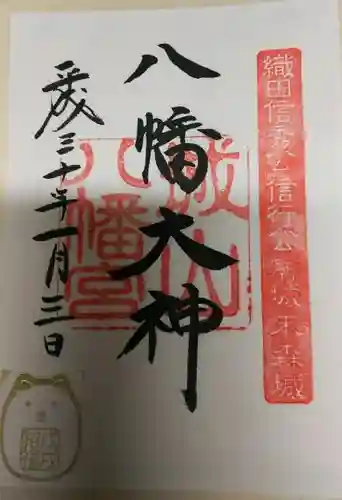 織田信秀公信行公 末森城
八幡大神
城山
八幡宮
平成三十年一月三日